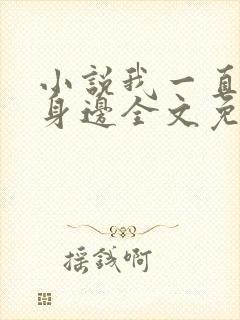 小說我一直
身邊全文免
摇錢啊